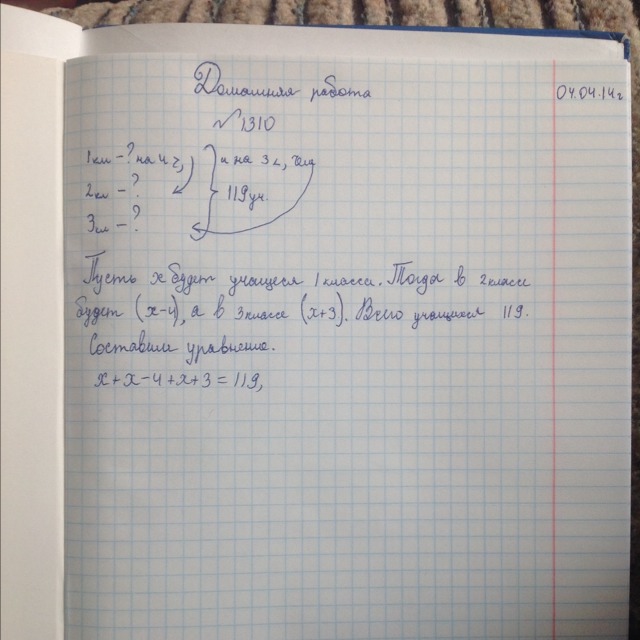 Домашняя работа
04.04.14г
№1310
1кл - ? на 4 >, и на 3 <, чем
2кл - ? 119уч.
3кл - ?
Пусть x будет учащиеся 1 класса. Тогда в 2 классе
будет (x-4), а в 3 классе (x+3). Всего учащихся 119.
Составим уравнение.
x+x-4+x+3=119,